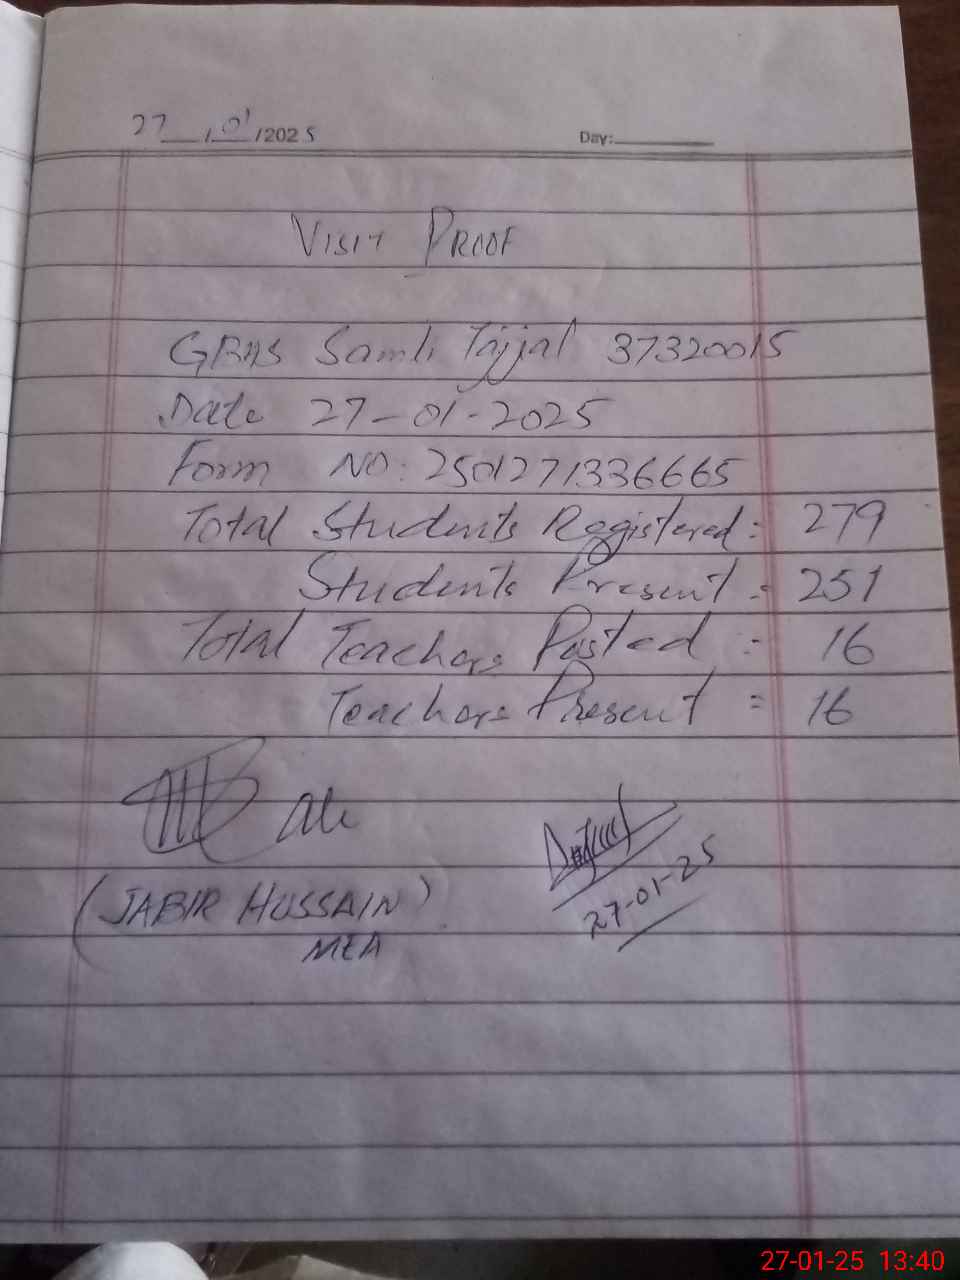 27 / 01 /2025 Day:
VISIT PROOF
GBHS Samli Tajjal 37320015
Date 27-01-2025
Form NO: 2501271336665
Total Students Registered = 279
Students Present = 251
Total Teachers Posted = 16
Teachers Present = 16
(JABIR HUSSAIN)
MEA
27-01-25
27-01-25 13:40